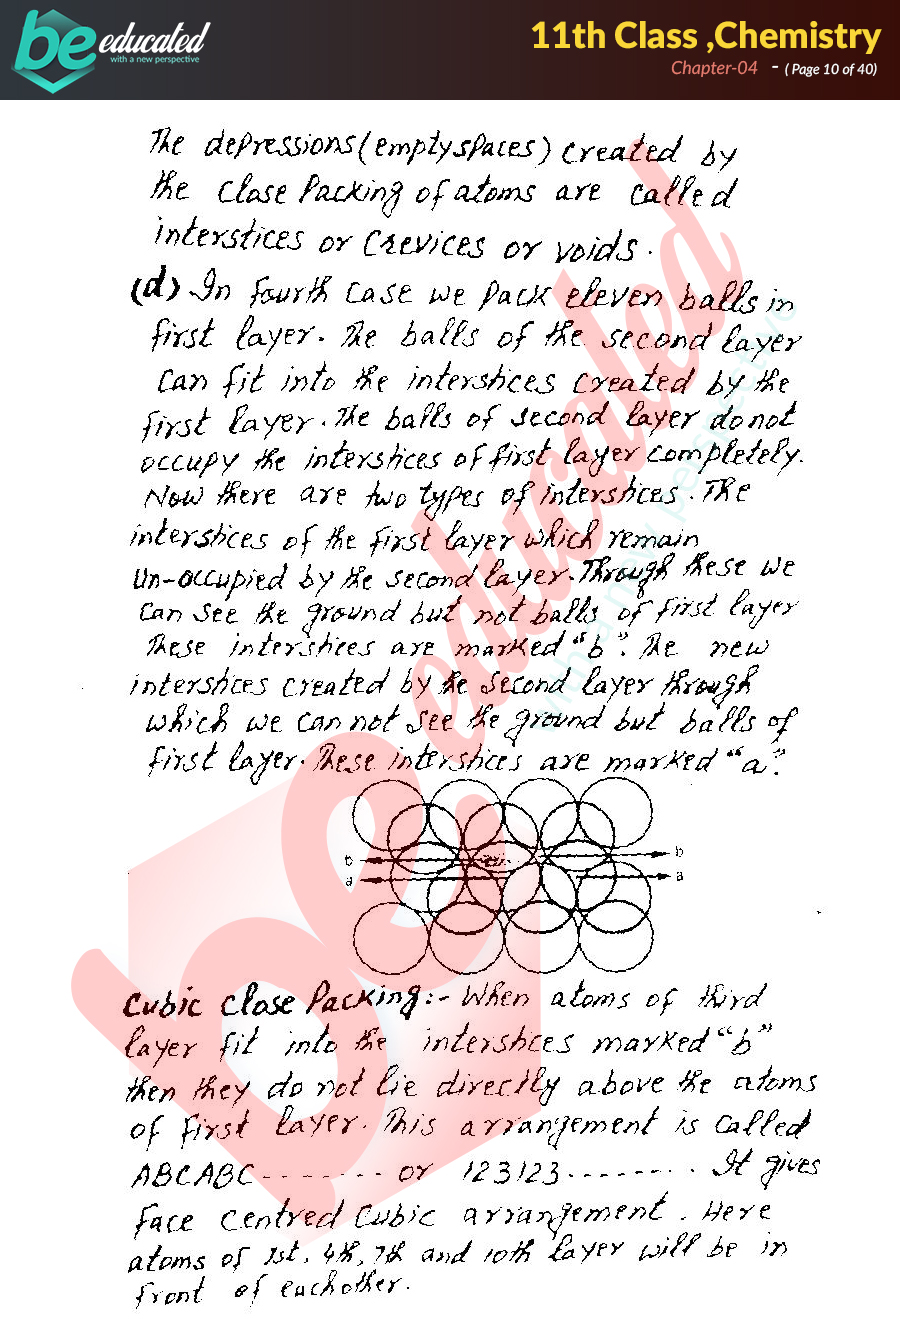 be educated
with a new perspective
11th Class ,Chemistry
Chapter-04 - ( Page 10 of 40)
The depressions (empty spaces) created by
the close Packing of atoms are called
interstices or Crevices or voids.
(d) In fourth case we Pack eleven balls in
first layer. The balls of the second layer
can fit into the interstices created by the
first layer. The balls of second layer do not
occupy the interstices of first layer completely.
Now there are two types of interstices. The
interstices of the first layer which remain
un-occupied by the second layer. Through these we
can see the ground but not balls of first layer
These interstices are marked "b". The new
interstices created by the second layer through
which we can not see the ground but balls of
first layer. These interstices are marked "a".
b b
a a
Cubic Close Packing:- When atoms of third
layer fit into the interstices marked "b"
then they do not lie directly above the atoms
of first layer. This arrangement is called
ABCABC-------- or 123123-------. It gives
Face Centred Cubic arrangement. Here
atoms of 1st, 4th, 7th and 10th layer will be in
front of eachother.
be educated
with a new perspective